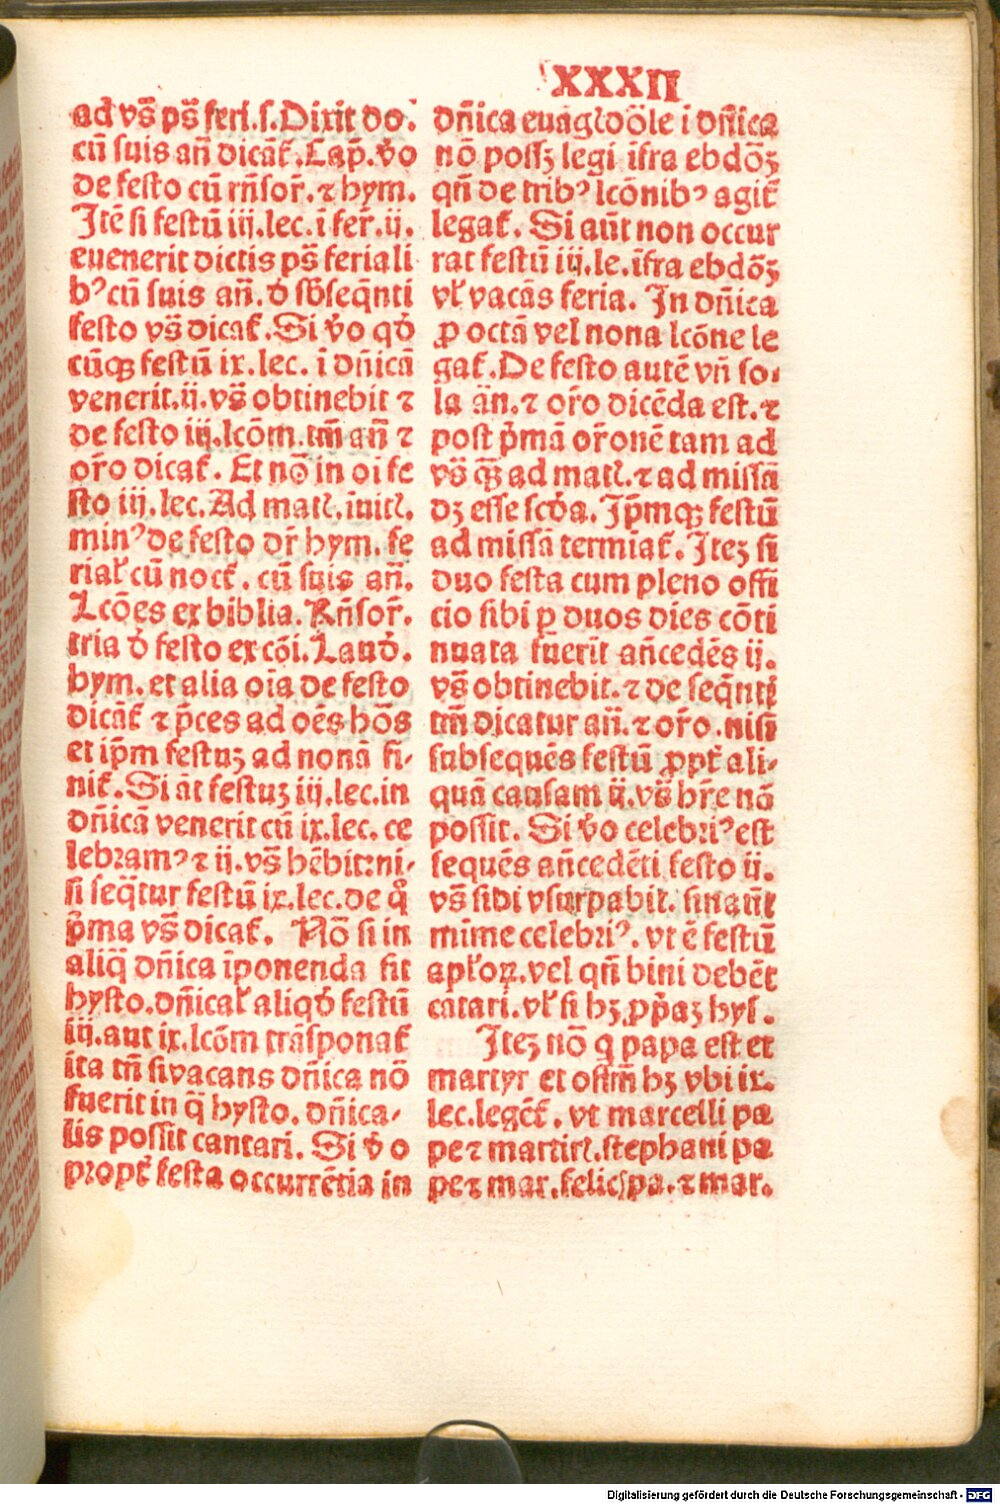 XXXII
ad vs̄ ps̄ feri.ſ.Dixit do.
cū ſuis an̄ dicāt̄. Cap̄. v̄o
de feſto cū rn̄ſor̄. ⁊ hym.
Itē ſi feſtū iij.lec.ī fer̄.ij.
evenerit dictis ps̄ feriali
bꝰ cū ſuis an̄. d̄ ſb̄ſeq̄nti
feſto vs̄ dicat̄. Si v̄o qd̄
cūqꝫ feſtū ix.lec. ī dn̄icā
venerit.ij. vs̄ obtinebit ⁊
de feſto iij.lcōm.tm̄ an̄ ⁊
or̄o dicat̄. Et nō in oī fe
ſto iij.lec. Ad matꝉ. īuitꝉ.
minꝰ de feſto dr̄ hym. fe
riaꝉ cū noct̄. cū ſuis an̄.
Lcōes ex biblia. Rn̄ſor̄.
tria d̄ feſto ex cōi. Laud̄.
hym. et alia oīa de feſto
dicāt̄ ⁊ p̄ces ad oēs hōs
et ip̄m feſtuꝫ ad nonā fi-
nit̄. Si āt feſtuꝫ iij.lec.in
dn̄icā venerit cū ix.lec. ce
lebramꝰ ⁊ ij. vs̄ hēbit:ni-
ſi ſeq̄tur feſtū ix.lec.de q̊
p̄ma vs̄ dicat̄. Nō ſi in
aliq̄ dn̄ica īponenda ſit
hyſto.dn̄icaꝉ aliqd̄ feſtū
iij.aut ix.lcōm trāſponat̄
ita tn̄ ſi vacans dn̄ica nō
fuerit in q̄ hyſto. dn̄ica-
lis poſſit cantari. Si v̄o
propt̄ feſta occurrētia in
dn̄ica evāgꝉ dōle ī dn̄ica
nō poſſꝫ legi īfra ebdōꝫ
qn̄ de tribꝰ lcōnibꝰ agit̄
legat̄. Si aūt non occur
rat feſtū iij.le.īfra ebdōꝫ
vꝉ vacās feria. In dn̄ica
ꝓ octā vel nona lcōne le
gat̄. De feſto autē vn̄ ſo-
la an̄. ⁊ or̄o dicēda eſt. ⁊
poſt p̄mā or̄onē tam ad
vs̄ qꝫ ad matꝉ. ⁊ ad miſſā
dꝫ eſſe ſcd̄a. Ip̄mqꝫ feſtū
ad miſſā termīat̄. Iteꝫ ſi
duo feſta cum pleno offi
cio ſibi ꝑ duos dies cōti
nuata fuerīt an̄cedēs ij.
vs̄ obtinebit. ⁊ de ſeq̄nti
tm̄ dicatur an̄. ⁊ or̄o. niſi
ſubſequēs feſtū ꝓpt̄ ali-
quā cauſam ij. vs̄ hr̄e nō
poſſit. Si v̄o celebriꝰ eſt
ſequēs an̄cedēti feſto ij.
vs̄ ſibi vſurpabit. ſin aūt
mīme celebriꝰ. vt ē feſtū
apꝉoꝝ. vel qn̄ bini debēt
cātari. vꝉ ſi hꝫ ꝓp̄aꝫ hyſ.
Iteꝫ nō q papa eſt et
martyr et oſtm̄ hꝫ vbi ix.
lec.legēt̄. vt marcelli pa
pe ⁊ martirꝉ. ſtephani pa
pe ⁊ mar. felicſ pa. ⁊ mar.
Digitalisierung gefördert durch die Deutsche Forschungsgemeinschaft - DFG